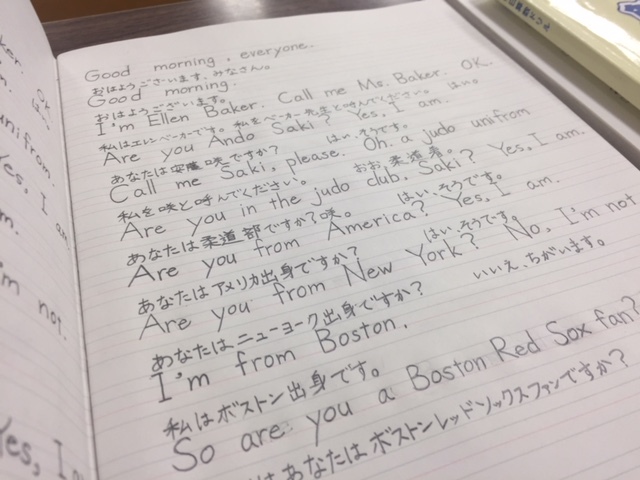 Good morning, everyone.
おはようございます、みなさん。
Good morning.
おはようございます。
I'm Ellen Baker. Call me Ms. Baker. OK.
私はエレン・ベーカーです。私をベーカー先生と呼んでください。 はい。
Are you Ando Saki? Yes, I am.
あなたは安藤咲ですか? はい、そうです。
Call me Saki, please. Oh. a judo unifrom
私を咲と呼んでください。 おお、柔道着。
Are you in the judo club, Saki? Yes, I am.
あなたは柔道部ですか?咲。 はい、そうです。
Are you from America? Yes, I am.
あなたはアメリカ出身ですか? はい、そうです。
Are you from New York? No, I'm not
あなたはニューヨーク出身ですか? いいえ、ちがいます。
I'm from Boston.
私はボストン出身です。
So are you a Boston Red Sox fan?
はあなたはボストンレッドソックスファンですか?